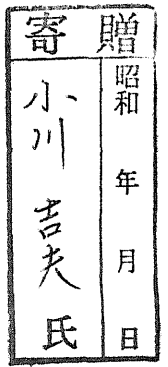 寄贈
昭和　年　月　日
小川吉夫氏